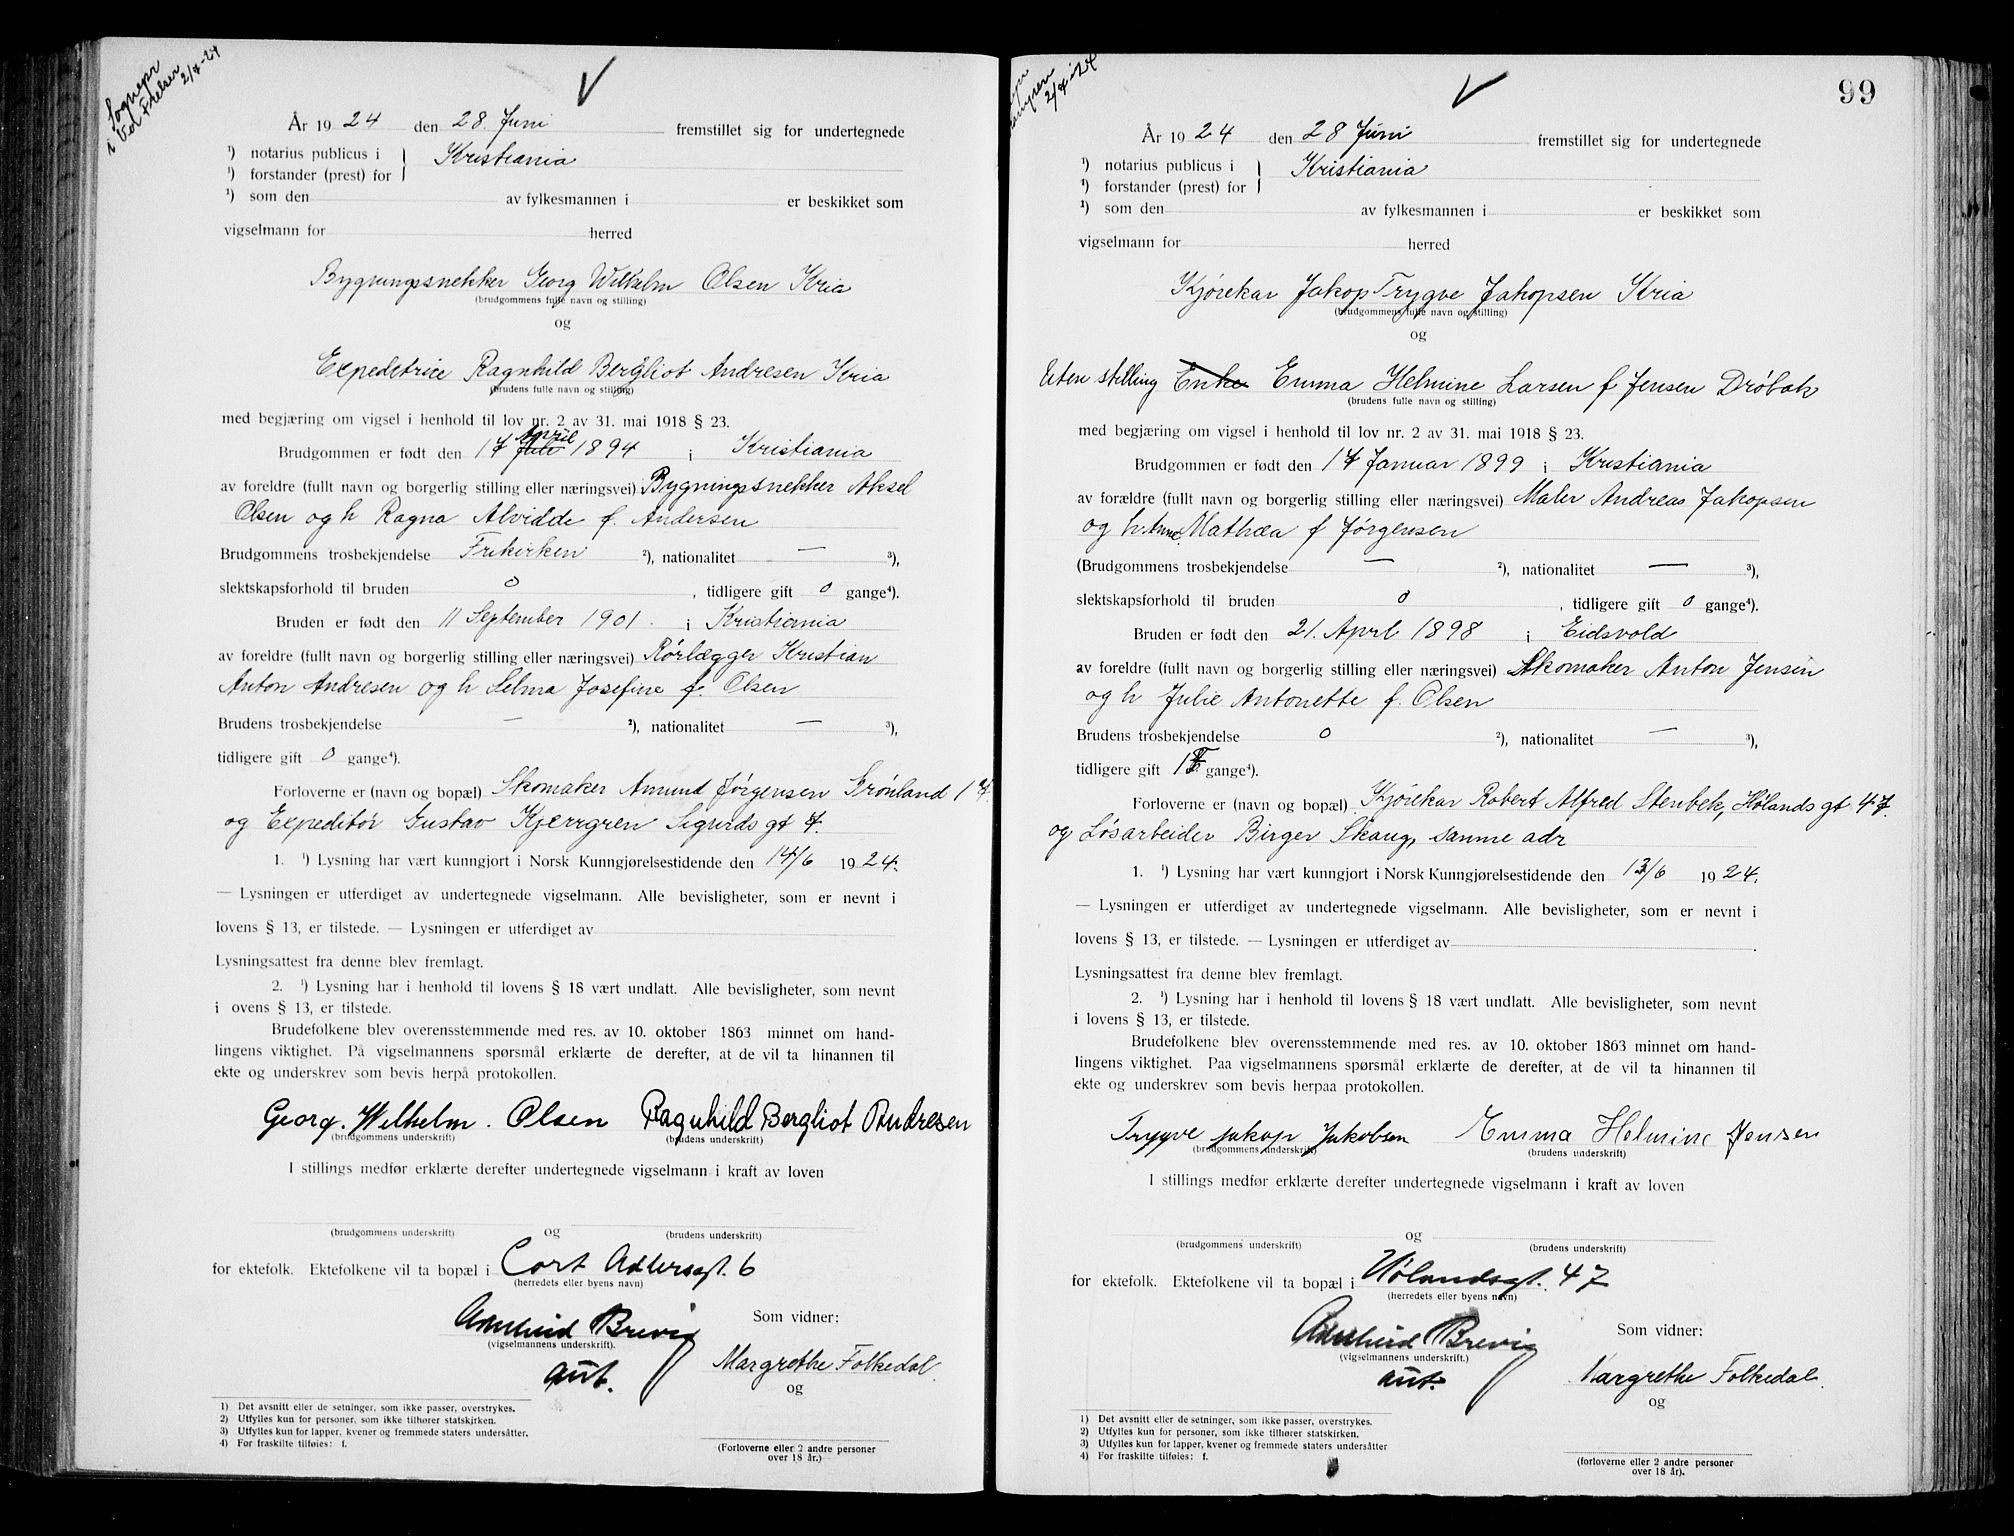 Sognepr
i Vor Frelser
2/7-24
År 1924 den 28. Juni fremstillet sig for undertegnede
¹) notarius publicus i } Kristiania
¹) forstander (prest) for
¹) som den av fylkesmannen i er beskikket som
vigselmann for herred
Bygningssnekker Georg Wilhelm Olsen Kria
(brudgommens fulle navn og stilling)
og
Expeditrice Ragnhild Bergliot Andresen Kria
(brudens fulle navn og stilling)
med begjæring om vigsel i henhold til lov nr. 2 av 31. mai 1918 § 23.
April
Brudgommen er født den 17 Juli 1894 i Kristiania
av foreldre (fullt navn og borgerlig stilling eller næringsvei) Bygningssnekker Aksel
Olsen og h Ragna Alvidde f. Andersen
Brudgommens trosbekjendelse Frikirken ²), nationalitet — ³),
slektskapsforhold til bruden 0, tidligere gift 0 gange⁴).
Bruden er født den 11 September 1901. i Kristiania
av foreldre (fullt navn og borgerlig stilling eller næringsvei) Rørlægger Kristian
Anton Andresen og h Selma Josefine f. Olsen
Brudens trosbekjendelse — ²), nationalitet — ³),
tidligere gift 0 gange⁴).
Forloverne er (navn og bopæl) Skomaker Amund Jørgensen Grønland 17.
og Expeditør Gustav Kjerrgren Sigurds gt 7.
1. ¹) Lysning har vært kunngjort i Norsk Kunngjørelsestidende den 14/6 1924.
— Lysningen er utferdiget av undertegnede vigselmann. Alle bevisligheter, som er nevnt i
lovens § 13, er tilstede. — Lysningen er utferdiget av
Lysningsattest fra denne blev fremlagt.
2. ¹) Lysning har i henhold til lovens § 18 vært undlatt. Alle bevisligheter, som nevnt
i ovens § 13, er tilstede.
Brudefolkene blev overensstemmende med res. av 10. oktober 1863 minnet om hand-
lingens viktighet. På vigselmannens spørsmål erklærte de derefter, at de vil ta hinannen til
ekte og underskrev som bevis herpå protokollen.
Georg. Wilhelm. Olsen Ragnhild Bergliot Andresen
(brudgommens underskrift) (brudens underskrift)
I stillings medfør erklærte derefter undertegnede vigselmann i kraft av loven
og
(brudgommens underskrift) (brudens underskrift)
for ektefolk. Ektefolkene vil ta bopæl i Cort Adlersgt. 6
(herredets eller byens navn)
Brevig Som vidner:
(vigselmannens underskrift).
aut. Margrethe Folkedal.
og
1) Det avsnitt eller de setninger, som ikke passer, overstrykes.
2) Utfylles kun for personer, som ikke tilhører statskirken.
3) Utfylles kun for lapper, kvener og fremmede staters undersåtter.
4) For fraskilte tilføies: f.
(Forloverne eller 2 andre personer
over 18 år.)
99
2/7-24
År 1924 den 28 Juni fremstillet sig for undertegnede
¹) notarius publicus i } Kristiania
¹) forstander (prest) for
¹) som den av fylkesmannen i er beskikket som
vigselmann for herred
Kjørekar Jakop Trygve Jakopsen Kria
(brudgommens fulle navn og stilling)
og
Uten stilling Enke Emma Helmine Larsen f Jensen Drøbak
(brudens fulle navn og stilling)
med begjæring om vigsel i henhold til lov nr. 2 av 31. mai 1918 § 23.
Brudgommen er født den 17 Januar 1899 i Kristiania
av forældre (fullt navn og borgerlig stilling eller næringsvei) Maler Andreas Jakopsen
og h. Anne Mathæa f Jørgensen
(Brudgommens trosbekjendelse — ²), nationalitet — ³),
slektskapsforhold til bruden 0, tidligere gift 0 gange⁴).
Bruden er født den 21. April 1898 i Eidsvold
av foreldre (fullt navn og borgerlig stilling eller næringsvei) Skomaker Anton Jensen
og h Julie Antonette f. Olsen
Brudens trosbekjendelse 0 ²), nationalitet — ³),
tidligere gift 1 f gange⁴).
Forloverne er (navn og bopæl) Kjørekar Robert Alfred Stenbek, Hølands gt 47.
og Løsarbeider Birger Skaug, samme adr
1. ¹) Lysning har vært kunngjort i Norsk Kunngjørelsestidende den 13/6 1924.
— Lysningen er utferdiget av undertegnede vigselmann. Alle bevisligheter, som er nevnt i
lovens § 13, er tilstede. — Lysningen er utferdiget av .
Lysningsattest fra denne blev fremlagt.
2. ¹) Lysning har i henhold til lovens § 18 vært undlatt. Alle bevisligheter, som nevnt
i lovens § 13, er tilstede.
Brudefolkene blev overensstemmende med res. av 10. oktober 1863 minnet om hand-
lingens viktighet. Paa vigselmannens spørsmål erklærte de derefter, at de vil ta hinannen til
ekte og underskrev som bevis herpaa protokollen.
Trygve Jakop Jakobsen Emma Helmine Jensen
(brudgommens underskrift) (brudens underskrift)
I stillings medfør erklærte derefter undertegnede vigselmann i kraft av loven
og
(brudgommens underskrift) (brudens underskrift)
for ektefolk. Ektefolkene vil ta bopæl i Hølandsgt. 47
(herredets eller byens navn)
Brevig Som vidner:
(vigselmannens underskrift.)
aut. Margrethe Folkedal.
og
1) Det avsnitt eller de setninger, som ikke passer, overstrykes.
2) Utfylles kun for personer, som ikke tilhører statskirken.
3) Utfylles kun for lapper, kvener og fremmede staters undersåtter
4) For fraskilte tilføies: f.
(forloverne eller 2 andre personer
over 18 år).